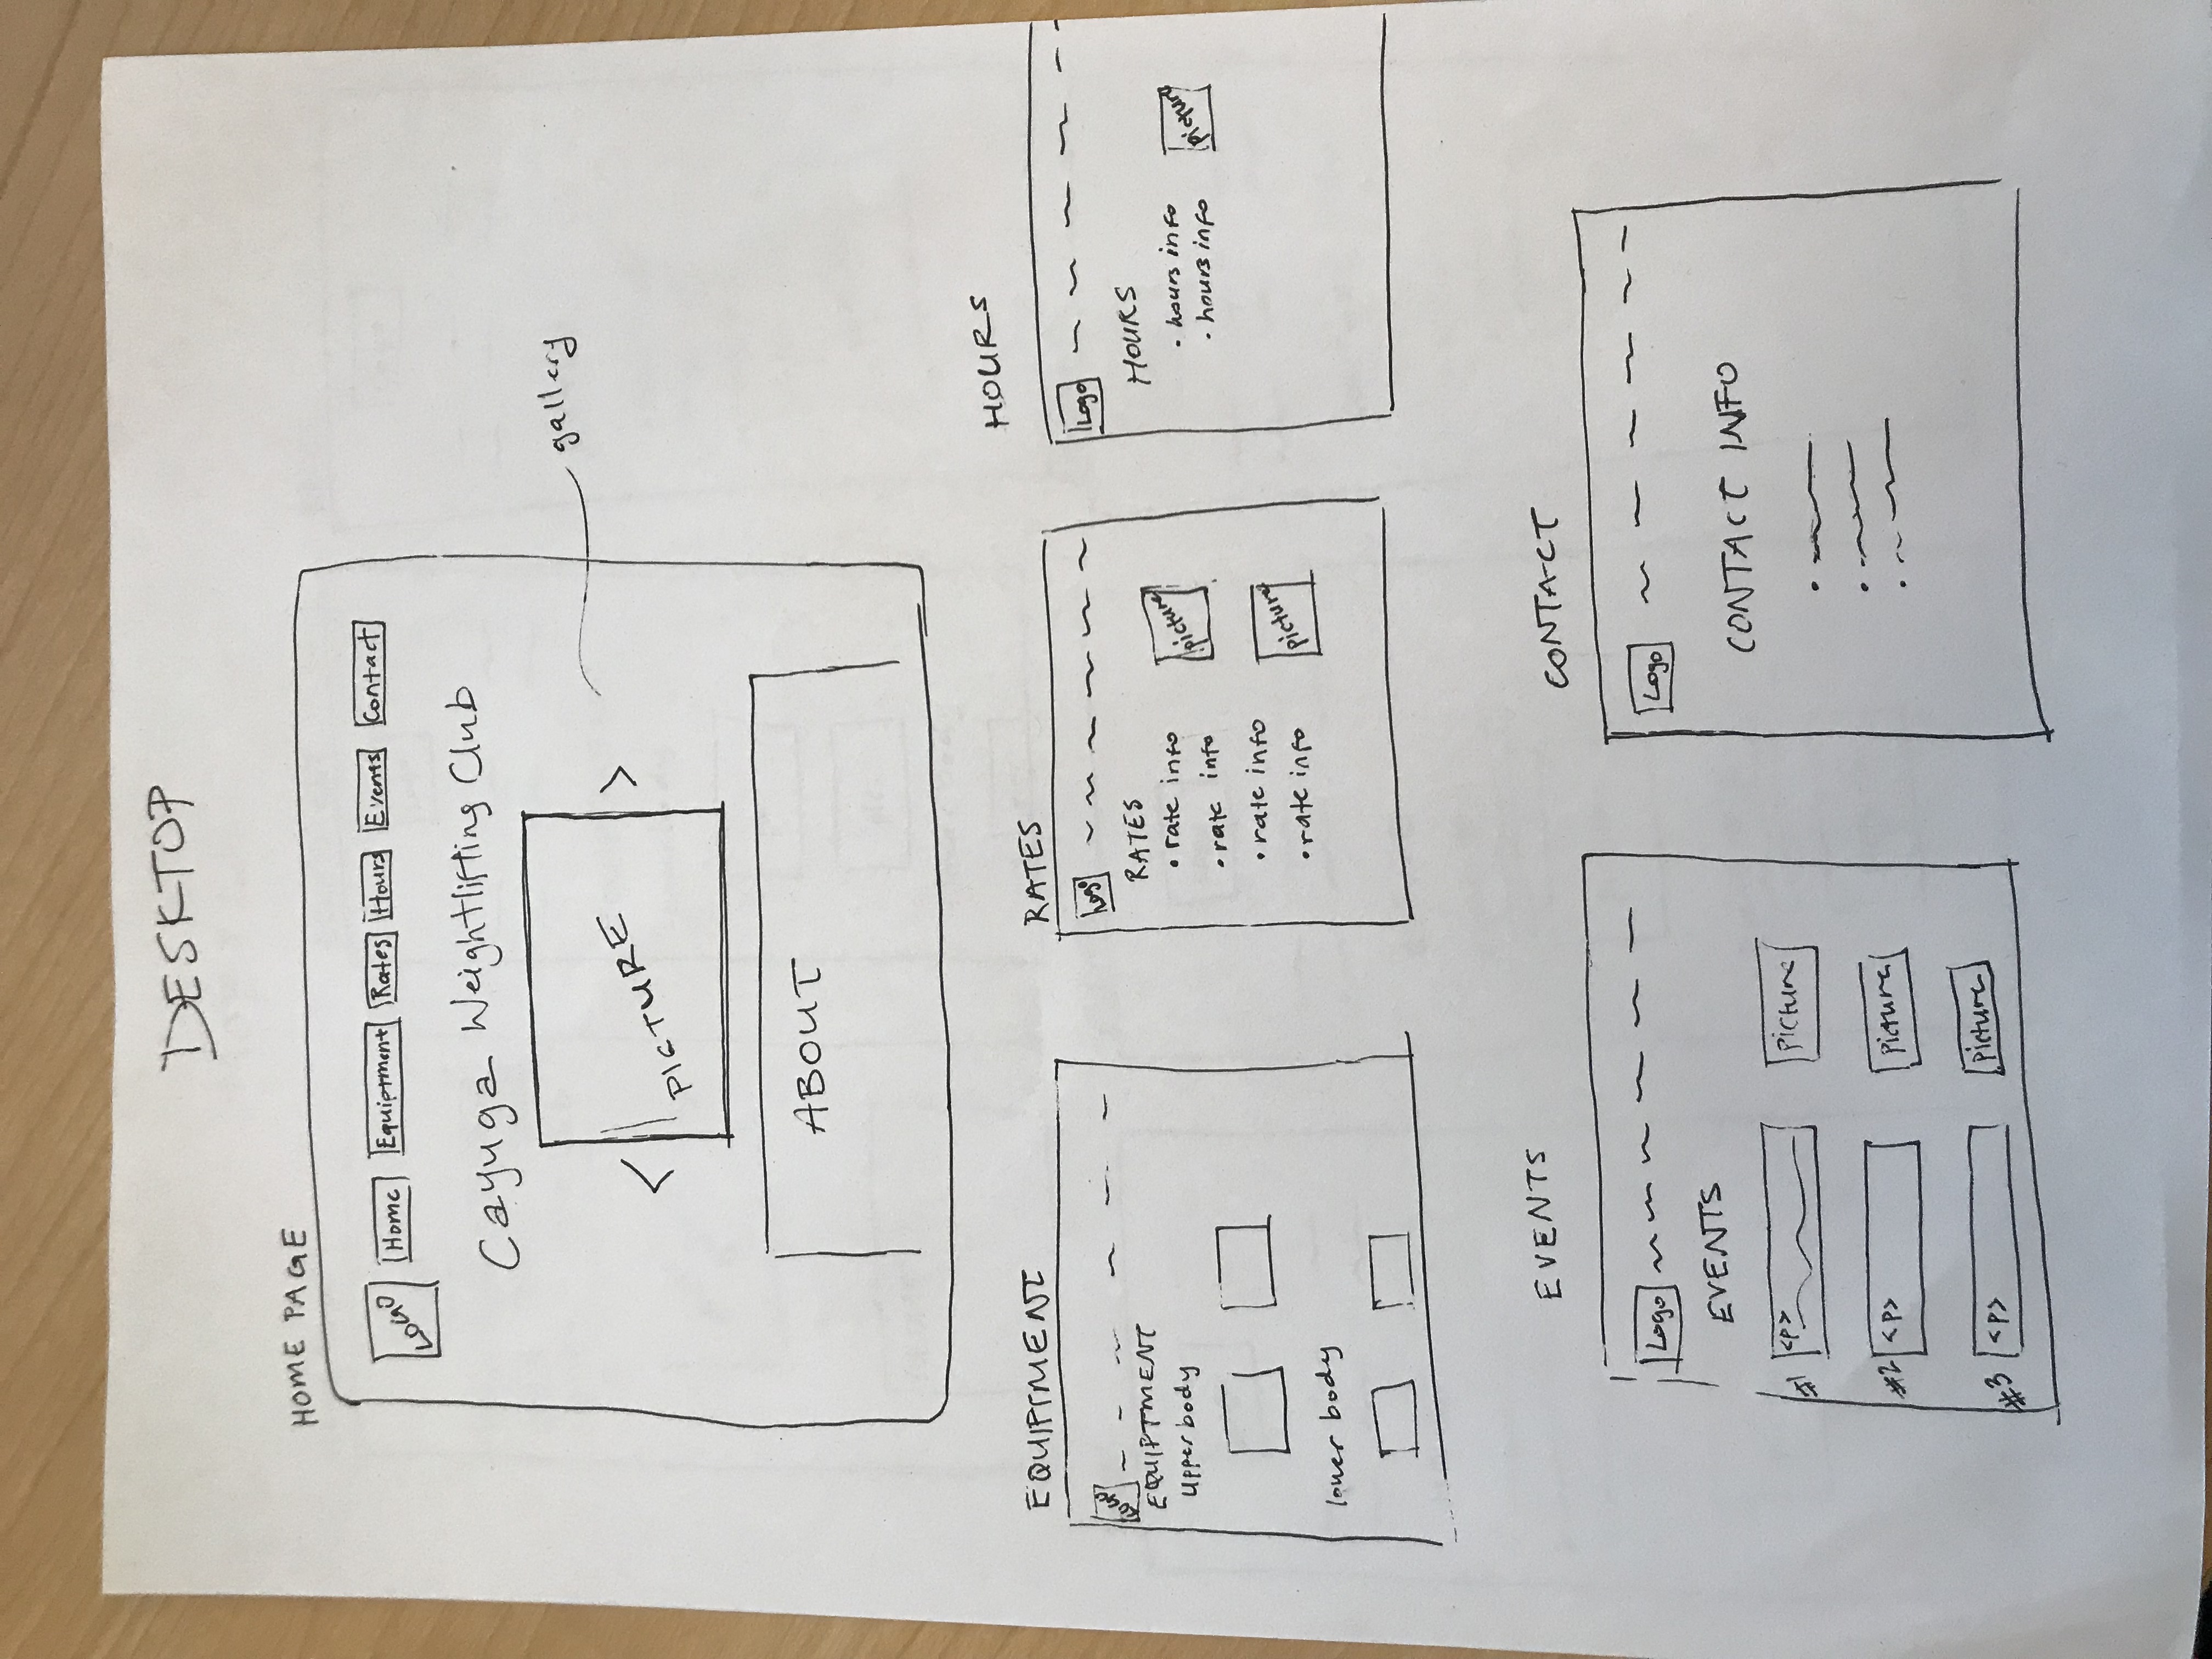 DESKTOP
HOME PAGE
LOGO Home Equiptment Rates Hours Events Contact
Cayuga Weightlifting Club
< PICTURE >
gallery
ABOUT
EQUIPTMENT
LOGO
EQUIPTMENT
upper body
lower body
RATES
Logo
RATES
• rate info
• rate info
• rate info
• rate info
picture
picture
HOURS
Logo
HOURS
• hours info
• hours info
picture
EVENTS
Logo
EVENTS
#1 <p> picture
#2 <p> picture
#3 <p> picture
CONTACT
Logo
CONTACT INFO